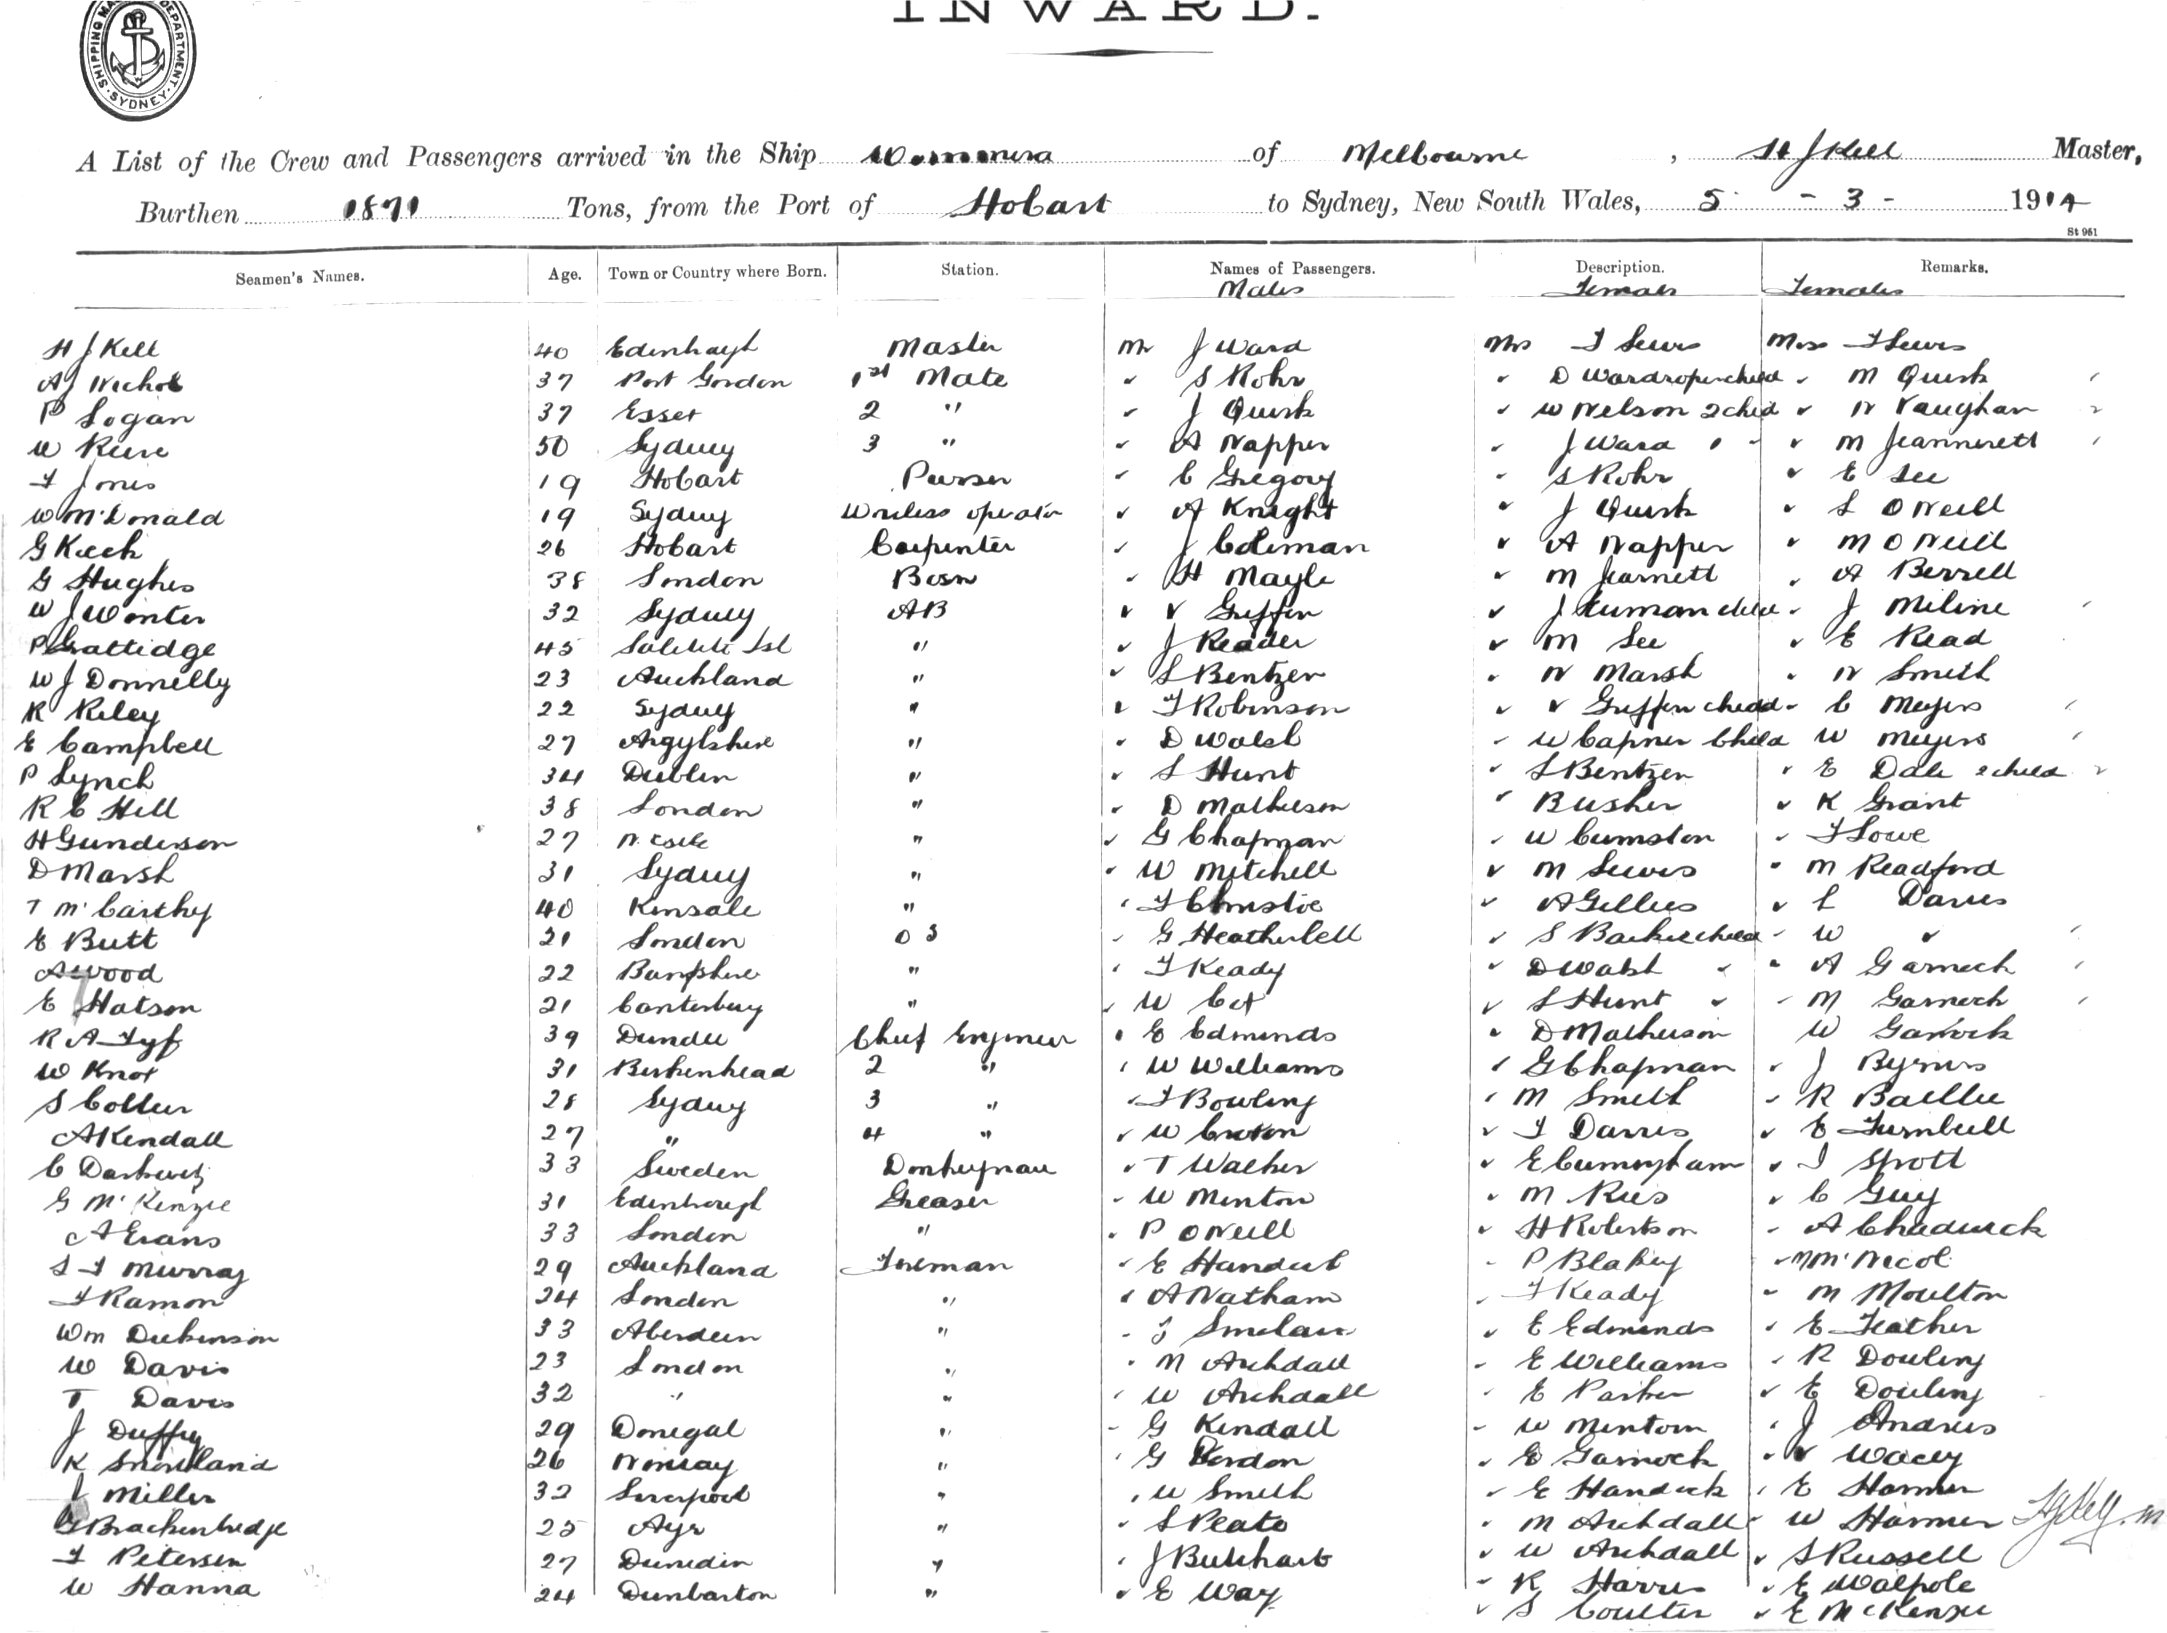 INWARD.
SHIPPING MA DEPARTMENT. SYDNEY.
A List of the Crew and Passengers arrived in the Ship of Melbourne, H J Kell Master,
Burthen 1871 Tons, from the Port of Hobart to Sydney, New South Wales, 5 - 3 - 1914
St 961
Seamen's Names. Age. Town or Country where Born. Station. Names of Passengers. Description. Remarks.
Males Females Females
H J Kell 40 Master Mr J Ward Mrs F Lewis Miss F Lewis
A J Nichol 37 Port Gordon 1st Mate " S Rohr " D Wardroper child " M Quirk
P Logan 37 Essex 2 " " J Quirk " W Nelson 2 child " N Vaughan
W 50 Sydney 3 " " A Napper " J Ward " " M Jeannerett
F Jones 19 Hobart Purser " C Gregory " S Rohr " E See
W McDonald 19 Sydney Wireless operator " A Knight " J Quirk " L O Neill
G Keech 26 Hobart Carpenter " J Coleman " A Napper " M O Neill
G Hughes 38 London Bosn " H Mayle " M " A Berrell
W J Winter 32 Sydney AB " V Griffin " J child " J Miline
P Gattidge 45 Isl " " J Reader " M See " E Read
W J Donnelly 23 Auckland " " S Bentzen " N Marsh " N Smith
R Riley 22 Sydney " " F Robinson " V Griffin child " C Meyers
E Campbell 27 Argylshire " " D Walsh " W Capner Child W Meyers
P Lynch 34 Dublin " " S Hunt " S Bentzen " E Dale 2 child
R C Hill 38 London " " D Matheson " Busher " K Grant
H Gunderson 27 N. Csle " " G Chapman " W Cumston " F Lowe
D Marsh 31 Sydney " " W Mitchell " M Lewis " M Readford
T McCarthy 40 Kinsale " " F Christie " A Gillies " L Davies
E Butt 21 London O S " G Heatherbell " S Barker child " W "
A Wood 22 Banfshire " " F Keady " D Walsh " " A Garnock
E Hatson 21 Canterbury " " W Cox " S Hunt " " M Garnock
R A Fyf 39 Dundee Chief Engineer " E Edmunds " D Matheson W Garnock
W Knox 31 Birkenhead 2 " " W Williams " G Chapman " J Byrnes
S Collier 28 Sydney 3 " " F Bowling " M Smith " R Baillie
A Kendall 27 " 4 " " W " F Davies " E Turnbull
C 33 Sweden Donkeyman " T Walker " E Cunningham " J Spott
G McKenzie 31 Greaser " W Minton " M Rees " C Guy
A Evans 33 London " " P O Neill " H Robertson " A Chadwick
S F Murray 29 Auckland Fireman " E " P Blakey " McNicol
F Ramon 24 London " " A Natham " F Keady " M Moulton
Wm Dickinson 33 Aberdeen " " Sinclair " E Edmunds " E Feather
W Davis 23 London " " M Archdall " E Williams " R Dowling
T Davis 32 " " " W Archdall " E Parker " E Dowling
J Duffy 29 Donegal " " G Kendall " W Mintorn " J Andrews
K 26 Norway " " G " E Garnock " V Wacey
J Miller 32 Liverpool " " W Smith " E " E Harmer
G Brackenbridge 25 Ayr " " S Peate " M Archdall " W Harmer
F Petersen 27 Dunedin " " J " W Archdall " S Russell
W Hanna 24 Dunbarton " " E Way " K Harris " E Walpole
" S Coulter " E McKenzie